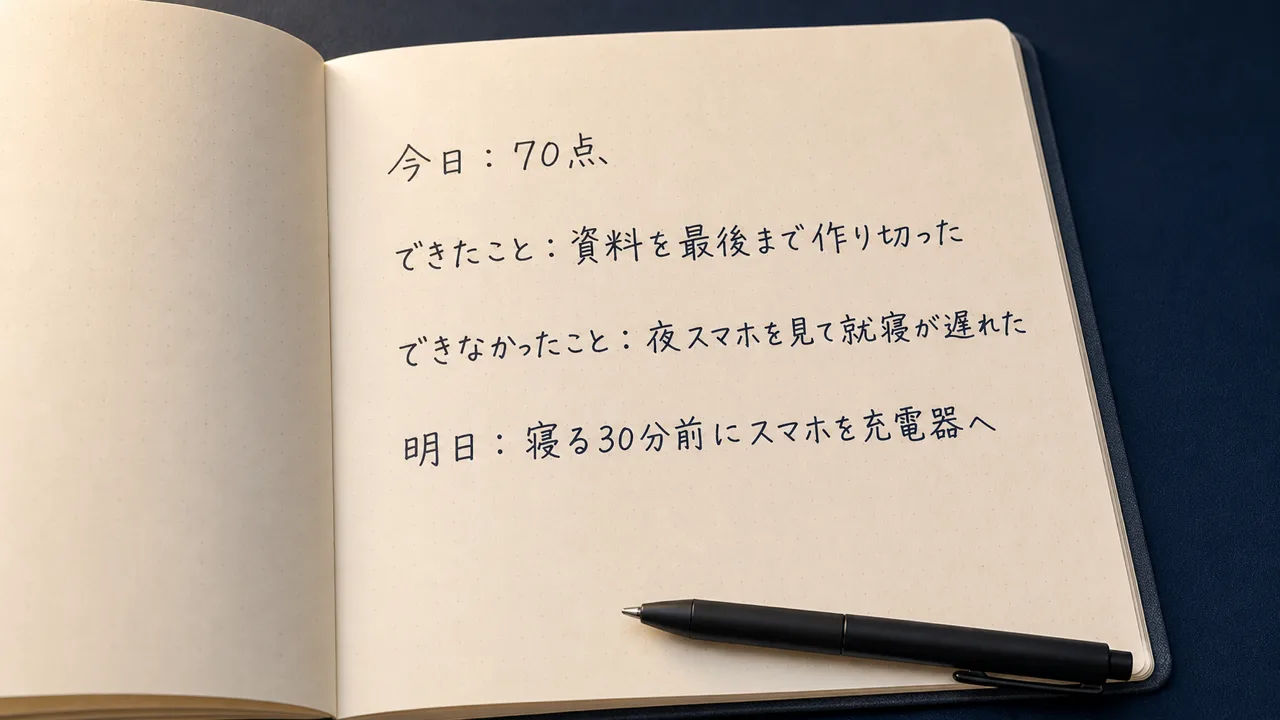 今日：70点、
できたこと：資料を最後まで作り切った
できなかったこと：夜スマホを見て就寝が遅れた
明日：寝る30分前にスマホを充電器へ